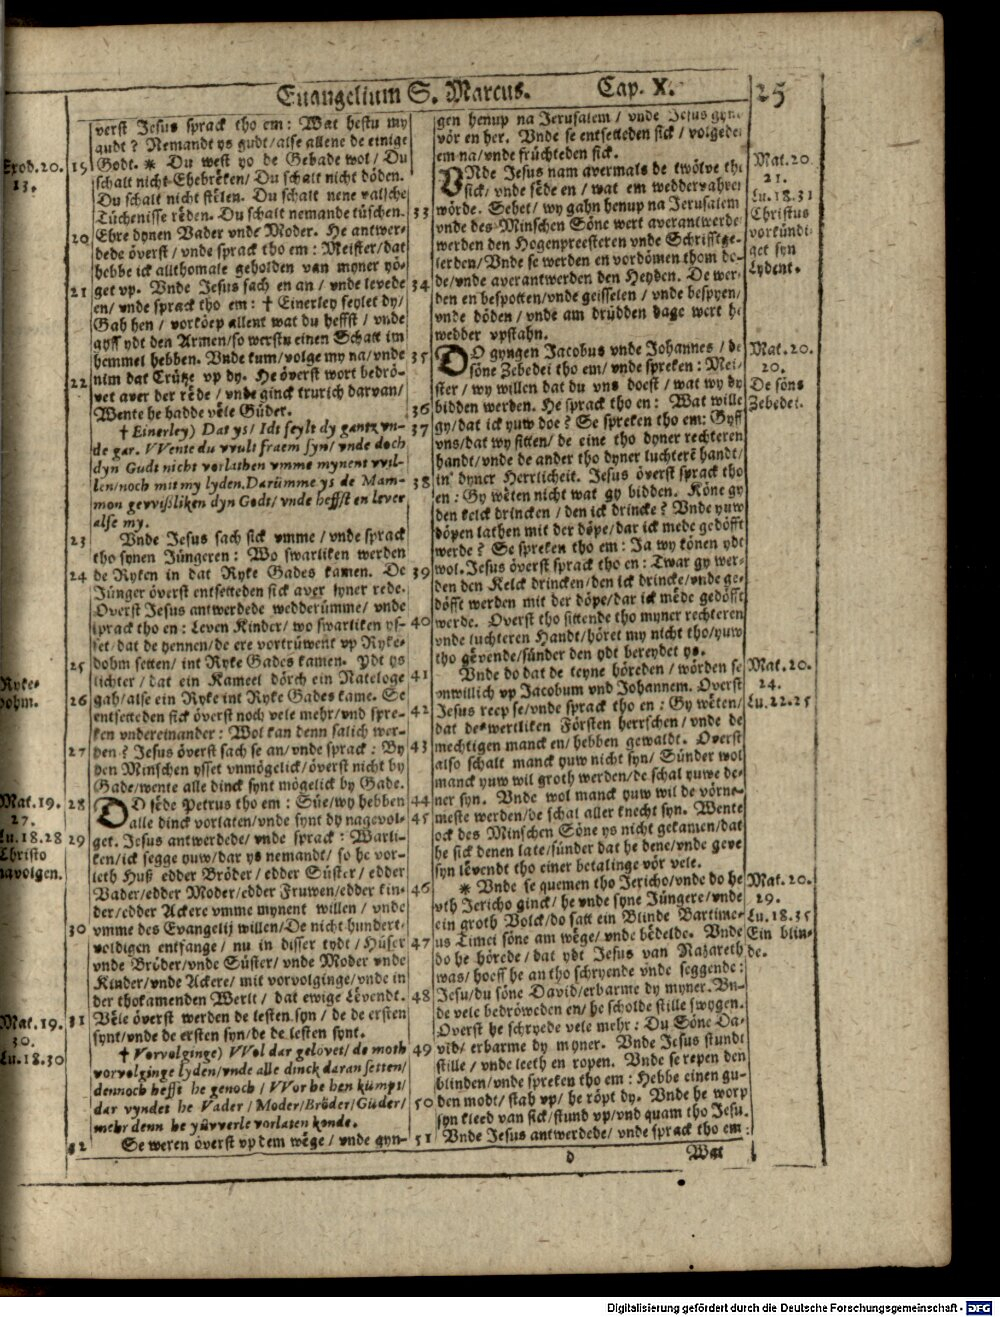 Euangelium S. Marcus. Cap. X. 25
verst Jesus sprack tho em: Wat hestu my
gudt? Nemandt ys gudt/alse allene de einige
15 Godt. * Du west yo de Gebade wol/ Du
schalt nicht Ehebreken/ Du schalt nicht döden.
Du schalt nicht stelen. Du schalt nene valsche
Tüchenisse reden. Du schalt nemande tüschen.
20 Ehre dynen Vader vnde Moder. He antwer-
dede överst/ vnde sprack tho em: Meister/dat
hebbe ick allthomale geholden van myner yö-
21 get vp. Vnde Jesus sach en an/ vnde levede
en/ vnde sprack tho em: † Einerley feylet dy/
Gah hen/ vorköep allent wat du heffst/ vnde
gyff ydt den Armen/so werstu einen Schatt im
hemmel hebben. Vnde kum/volge my na/vnde
22 nim dat Crütze vp dy. He överst wort bedrö-
vet aver der rede/ vnde ginck trurich darvan/
Wente he hadde vele Güder.
† Einerley) Dat ys/ Idt feylt dy gantz vn-
de gar. VVente du vvult fraem syn/ vnde doch
dyn Gudt nicht vorlathen vmme mynent vvil-
len/noch mit my lyden. Darümme ys de Mam-
mon gevvißliken dyn Godt/ vnde heffst en lever
alse my.
23 Vnde Jesus sach sick vmme/ vnde sprack
tho synen Jüngeren: Wo swarliken werden
24 de Ryken in dat Ryke Gades kamen. De
Jünger överst entsetteden sick aver syner rede.
Överst Jesus antwerdede wedderümme/ vnde
sprack tho en: Leven Kinder/ wo swarliken ys-
set/dat de yennen/de ere vortrüwent vp Ryke-
25 dohm setten/ int Ryke Gades kamen. Ydt ys
lichter/ dat ein Kameel dörch ein Nateloge
26 gah/alse ein Ryke int Ryke Gades kame. Se
entsetteden sick överst noch vele mehr/vnd spre-
ken vndereinander: Wol kan denn salich wer-
27 den? Jesus överst sach se an/vnde sprack: By
den Minschen ysset vnmögelick/överst nicht by
Gade/wente alle dinck synt mögelick by Gade.
28 DO sede Petrus tho em: Süe/wy hebben
alle dinck vorlaten/vnde synt dy nagevol-
29 get. Jesus antwerdede/ vnde sprack: Warli-
ken/ick segge yuw/dar ys nemandt/ so he vor-
leth Huß edder Bröder/ edder Süster/ edder
Vader/edder Moder/edder Fruwen/edder kin-
der/edder Ackere vmme mynent willen/ vnde
30 vmme des Evangelij willen/De nicht hundert-
veldigen entfange/ nu in disser tydt/ Hüser
vnde Bröder/vnde Süster/ vnde Moder vnde
Kinder/vnde Ackere/ mit vorvolginge/vnde in
der thokamenden Werlt/ dat ewige Levendt.
31 Vele överst werden de lesten syn/ de de ersten
synt/vnde de ersten syn/de de lesten synt.
† Vorvolginge) VVol dar gelövet/ de moth
vorvolginge lyden/vnde alle dinck daran setten/
dennoch hefft he genoch/ VVor he hen kümpt/
dar vyndet he Vader/ Moder/Bröder/Güder/
mehr denn he yüvverle vorlaten konde.
32 Se weren överst vp dem wege/ vnde gyn-
Exod. 20.
13.
Ryke-
dohm.
Mat. 19.
27.
Lu. 18.28
Christo
navolgen.
Mat. 19.
30.
Lu. 18.30
gen henup na Jerusalem/ vnde Jesus gyn
vör en her. Vnde se entsetteden sick/ volgede
em na/vnde früchteden sick.
VNde Jesus nam avermals de twölve th
sick/ vnde sede en/ wat em weddervahren
33 wörde. Sehet/ wy gahn henup na Jerusalem
vnde des Minschen Söne wert averantwerde
werden den Hogenpreesteren vnde Schrifftge-
lerden/Vnde se werden en vordömen thom do-
34 de/vnde averantwerden den Heyden. De wer-
den en bespotten/vnde geisselen/ vnde bespyen/
vnde döden/ vnde am drüdden dage wert he
wedder vpstahn.
35 DO gyngen Jacobus vnde Johannes/ de
söne Zebedei tho em/ vnde spreken: Mei-
ster/ wy willen dat du vns doest/ wat wy dy
36 bidden werden. He sprack tho en: Wat wille
37 gy/dat ick yuw doe? Se spreken tho em: Gyff
vns/dat wy sitten/ de eine tho dyner rechteren
handt/vnde de ander tho dyner luchterē handt/
in dyner Herrlicheit. Jesus överst sprack tho
38 en: Gy weten nicht wat gy bidden. Köne gy
den kelck drincken/ den ick drincke? Vnde yuw
döpen lathen mit der döpe/dar ick mede gedöfft
werde? Se spreken tho em: Ja wy könen ydt
39 wol. Jesus överst sprack tho en: Twar gy wer-
den den Kelck drincken/den ick drincke/vnde ge-
döfft werden mit der döpe/dar ick mede gedöfft
40 werde. Överst tho sittende tho myner rechteren
vnde luchteren Handt/höret my nicht tho/yuw
tho gevende/sünder den ydt bereydet ys.
41 Vnde do dat de teyne höreden/ wörden se
vnwillich vp Jacobum vnd Johannem. Överst
42 Jesus reep se/vnde sprack tho en: Gy weten/
dat de wertliken Försten herrschen/ vnde de
43 mechtigen manck en/ hebben gewaldt. Överst
also schalt manck yuw nicht syn/ Sünder wol
manck yuw wil groth werden/de schal yuwe de-
44 ner syn. Vnde wol manck yuw wil de vörne-
45 meste werden/de schal aller knecht syn. Wente
ock des Minschen Söne ys nicht gekamen/dat
he sick denen late/sünder dat he dene/vnde geve
syn levendt tho einer betalinge vör vele.
46 * Vnde se quemen tho Jericho/vnde do he
vth Jericho ginck/ he vnde syne Jüngere/vnde
ein groth Volck/do satt ein Blinde Bartime-
us Timei söne am wege/ vnde bedelde. Vnde
47 do he hörede/ dat ydt Jesus van Nazareth
was/ hoeff he an tho schryende vnde seggende:
48 Jesu/du söne David/erbarme dy myner. Vn-
de vele bedröweden en/ he scholde stille swygen.
Överst he schryede vele mehr: Du Söne Da-
49 vid/ erbarme dy myner. Vnde Jesus stundt
stille/ vnde leeth en ropen. Vnde se repen den
blinden/vnde spreken tho em: Hebbe einen gu-
50 den modt/ stah vp/ he röpt dy. Vnde he worp
syn kleed van sick/stund vp/vnd quam tho Jesu.
51 Vnde Jesus antwerdede/ vnde sprack tho em:
d Wat
Mat. 20.
21.
Lu. 18.31
Christus
vorkündi-
get syn
Lydent.
Mat. 20.
20.
De söns
Zebedei.
Mat. 20.
24.
Lu. 22.25
Mat. 20.
29.
Lu. 18.35
Ein blin-
de.
Digitalisierung gefördert durch die Deutsche Forschungsgemeinschaft - DFG